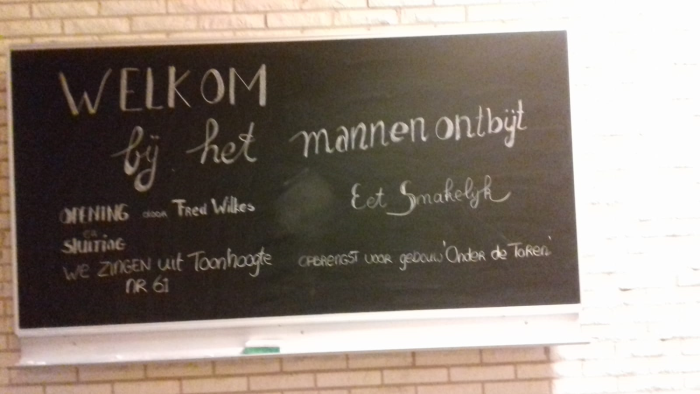 WELKOM
bij het mannenontbijt
Eet Smakelijk
OPENING door Fred Wilkes
en
Sluiting
We ZINGEN uit Toonhoogte
NR 61
OPBRENGST voor gebouw 'Onder de Toren'